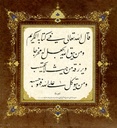 قال الله تعالى في كتابه الكريم
ومن يتق الله يجعل له مخرجا
ويرزقه من حيث لا يحتسب
ومن يتوكل على الله فهو حسبه